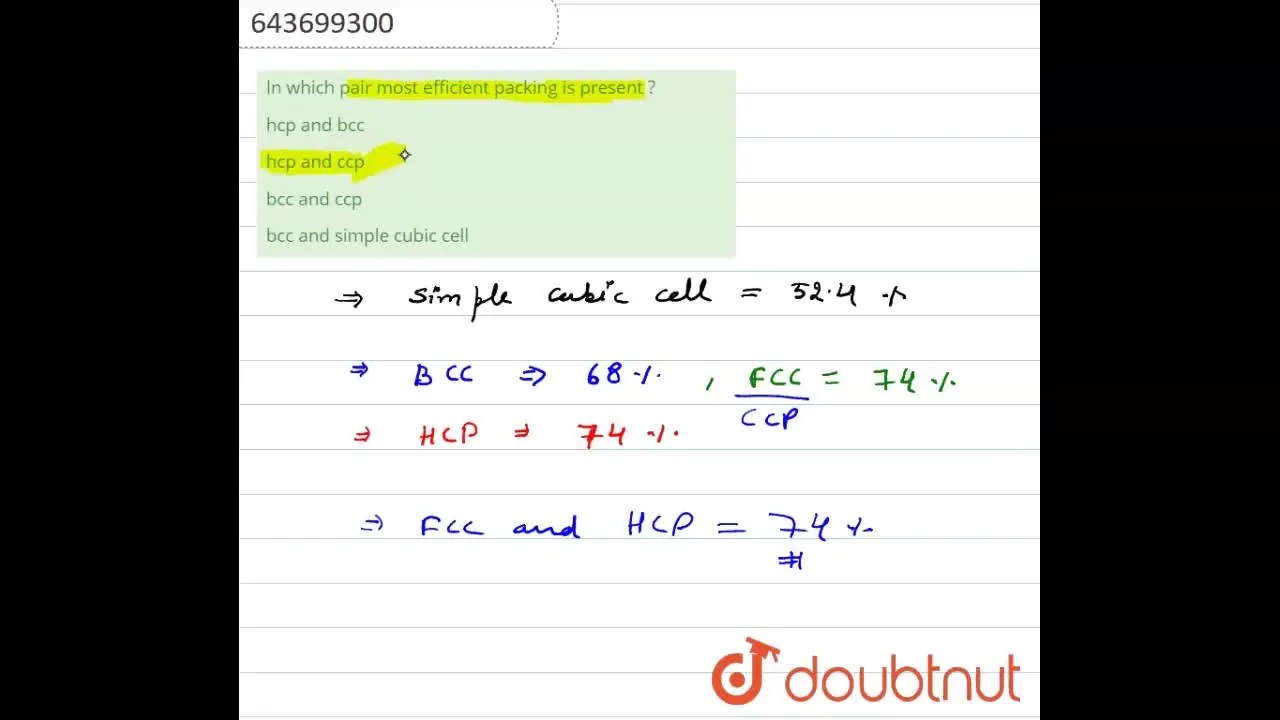 643699300
In which pair most efficient packing is present ?
hcp and bcc
hcp and ccp
bcc and ccp
bcc and simple cubic cell
⇒ simple cubic cell = 52.4 %
⇒ BCC ⇒ 68 %. , FCC = 74 %.
CCP
⇒ HCP ⇒ 74 %.
⇒ FCC and HCP = 74 %.
doubtnut